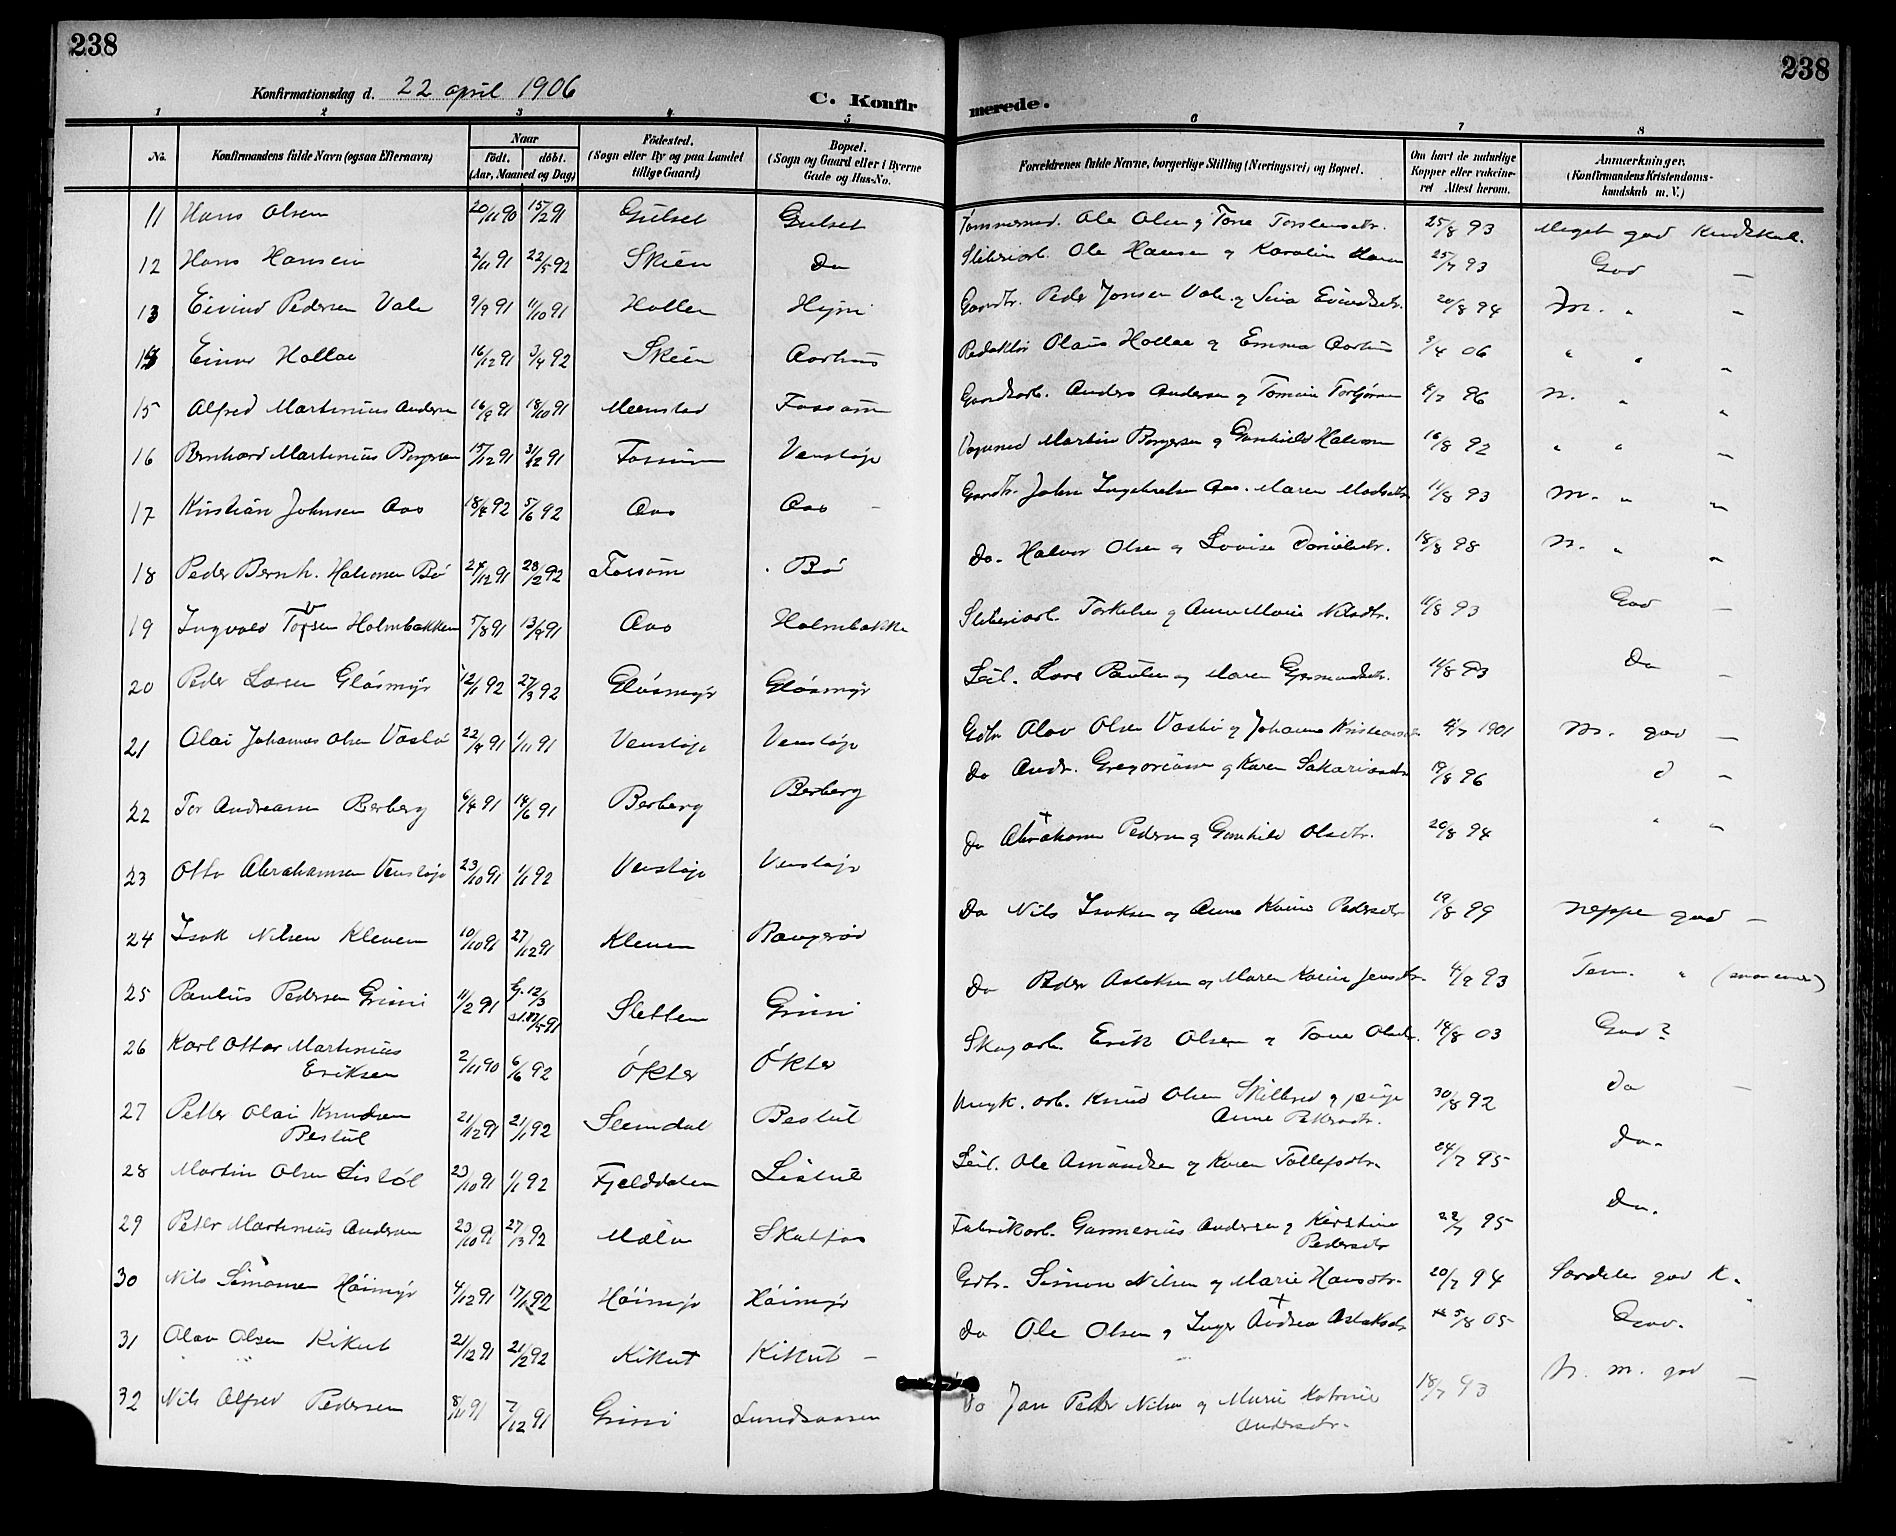 238
238
Konfirmationsdag d. 22 april 1906
C. Konfir
merede.
1 2 3 4 5 6 7 8
No.
Konfirmandens fulde Navn (ogsaa Efternavn)
Naar
födt. döbt.
(Aar, Maaned og Dag)
Födested.
(Sogn eller By og paa Landet
tillige Gaard)
Bopæl.
(Sogn og Gaard eller i Byerne
Gade og Hus-No.
Forældrenes fulde Navne, borgerlige Stilling (Næringsvei) og Bopæl.
Om havt de naturlige
Kopper eller vakcine-
ret Attest herom.
Anmærkninger.
(Konfirmandens Kristendoms-
kundskab m. V.)
11 Hans Olsen 20/11 90 15/2 91 Gulset Gulset Tømmermd. Ole Olsen og Tone Torstensdtr. 25/8 93 Meget god Kundskab.
12 Hans Hansen 2/11 91 22/5 92 Skien Do Sliberiarb. Ole Hansen og Karoline 25/7 93 God —
13 Eivind Pedersen Vale 9/9 91 11/10 91 Hollen Hejni Gaardbr. Peder Jonsen Vale og 20/8 94 M. " —
Einar Hollae 16/12 91 3/4 92 Skien Aarhus Redaktør Olaus Hollae og Emma Aarhus 3/4 06 " " —
15 Alfred Martinius Andersen 16/9 91 18/10 91 Fossum Gaardsarb. Anders Andersen og 96 N. " "
16 Bernhard Martinius Borgersen 15/12 91 Fossum Venstøp Martin Borgersen og Gunhild 16/8 92 " " —
17 Kristian Johnsen Aas 18/4 92 5/6 92 Aas Aas — Gaardbr. John Ingebretsen Aas. Maren Madsdtr 11/8 93 M. " "
18 Peder Bernh. Halvorsen Bö 27/12 91 28/2 92 Fossum Bö Do. Halvor Olsen og Lovise Danielsdtr. 18/8 98 N. " "
19 Ingvald Holmbakken 5/8 91 13/9 91 Aas Holmbakken Sliberiarb. Torkelsen og Anne Marie Nilsdtr. 11/8 93 God —
20 Peder Larsen Glösmyr 12/1 92 27/3 92 Glösmyr Glösmyr Lars Paulsen og Maren 11/8 93 Do —
21 Olai Johannes Olsen 22/9 91 1/11 91 Venstøp Venstøp Gbr Olav Olsen og Johanne 4/7 1901 M. god —
22 Tor Andreassen Berberg 6/4 91 14/6 91 Berberg Berberg Do Andr. Gregoriusen og Karen Sakariasdtr 19/8 96 d —
23 Otto Abrahamsen Venstøp 23/10 91 1/1 92 Venstøp Venstøp Do Abraham Pedersen og Gunhild Olsdtr. 20/8 94 " "
24 Isak Nilsen Kleven 10/10 91 27/12 91 Kleven Do Nils Isaksen og Anne Karine Pedersdtr 19/8 99 Neppe god —
25 Paulus Pedersen Grini 11/2 91 Sletten Grini Do Peder Aslaksen og Maren Karine Jensdtr 93 Tem. "
26 Karl Ottar Martinius
Eriksen 2/11 90 6/6 92 Ökter Ökter Skogarb. Erik Olsen og Tone Olsdtr. 14/8 03 God?
27 Petter Olai Knudsen
Bestul 21/12 91 21/1 92 Slemdal Bestul Knud Olsen og pige
Anne Pettersdtr. 30/8 92 Do —
28 Martin Olsen Listöl 23/10 91 1/1 92 Fjelddalen Listul Ole Amundsen og Karen Tollefsdtr. 24/7 95 Do.
29 Peter Martinius Andersen 23/10 91 27/3 92 Mæla Skotfos Fabrikarb. Andersen og Kirstine
Pedersdtr 22/7 95 Do.
30 Nils Simonsen Höimyr 4/12 91 17/1 92 Höimyr Höimyr Gbr. Simon Nilsen og Marie Hansdtr. 20/7 94 Særdeles god K.
31 Olav Olsen Kikut 21/12 91 21/2 92 Kikut Kikut — Do Ole Olsen og Inger Andrea Aslaksdtr 5/8 05 God.
32 Nils Alfred Pedersen 8/11 91 7/12 91 Grini Lundsaasen Do Jan Peder Nilsen og Maria Katrine
Andersdtr. 18/7 93 N. m. god —